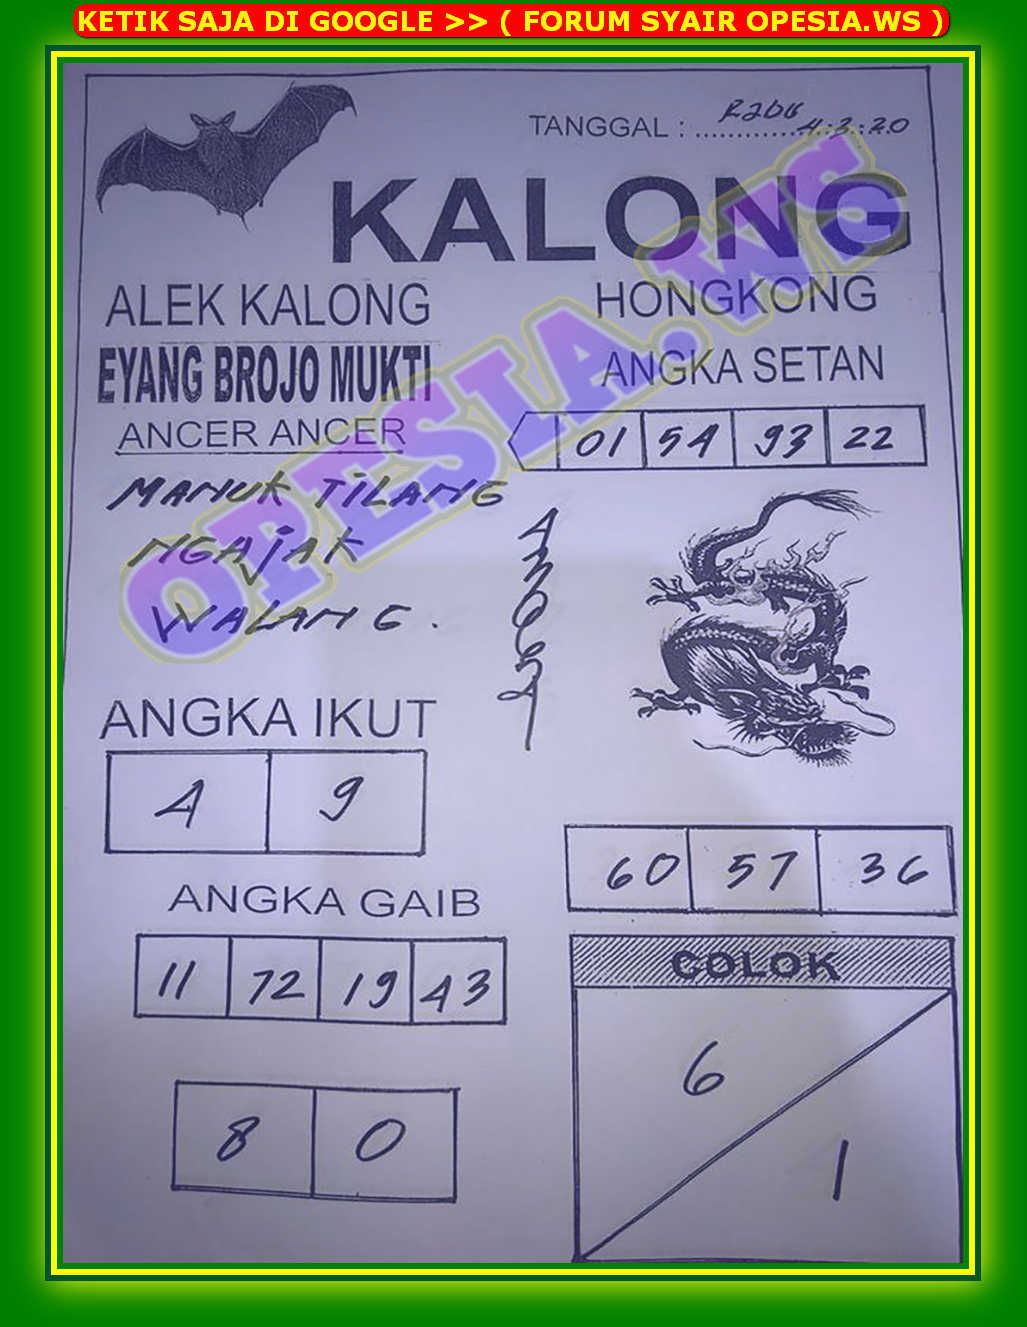 KETIK SAJA DI GOOGLE >> ( FORUM SYAIR OPESIA.WS )
TANGGAL : Rabu 4:3:20
KALONG
ALEK KALONG
EYANG BROJO MUKTI
ANCER ANCER
MANUK TILANG
NGAJAK
WALANG.
HONGKONG
ANGKA SETAN
01 54 93 22
OPESIA.WS
ANGKA IKUT
4 9
60 57 36
ANGKA GAIB
11 72 19 43
8 0
COLOK
6
1